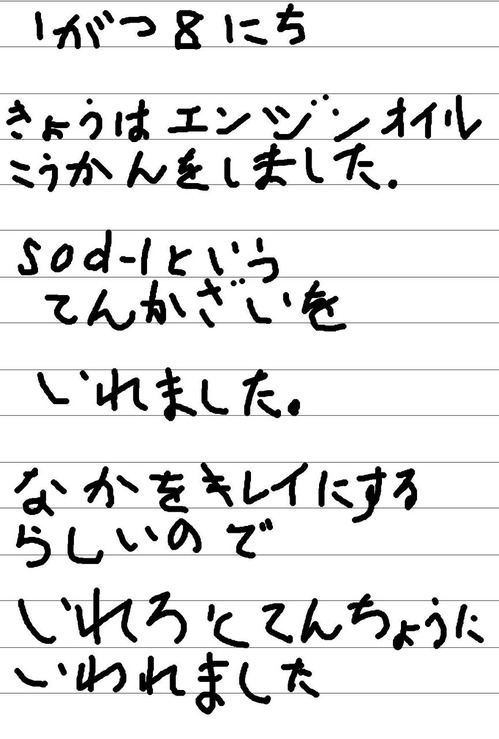 1がつ8にち
きょうはエンジンオイル
こうかんをしました.
sod-1という
てんかざいを
いれました。
なかをキレイにする
らしいので
いれろとてんちょうに
いわれました